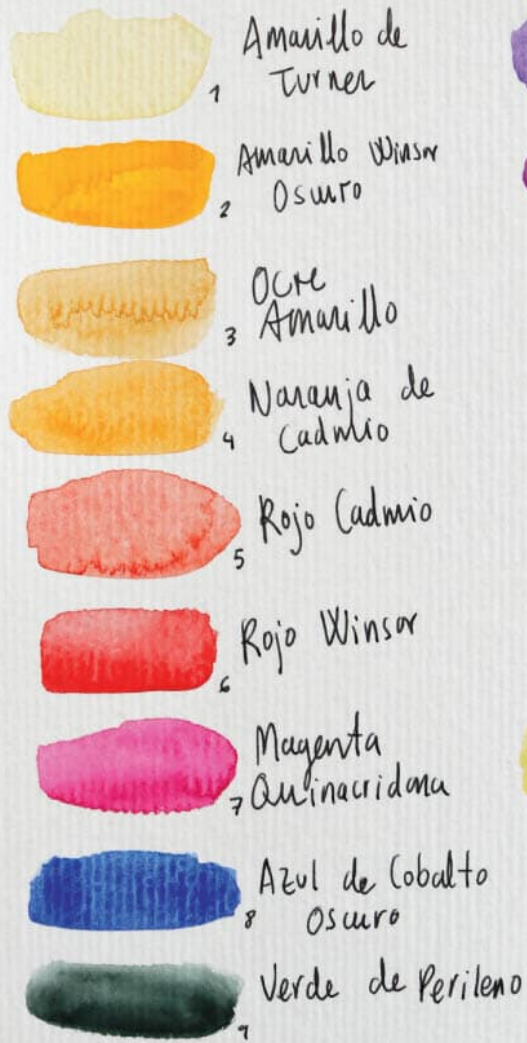 Amarillo de
Turner
1
Amarillo Winsor
Oscuro
2
Ocre
Amarillo
3
Naranja de
Cadmio
4
Rojo Cadmio
5
Rojo Winsor
6
Magenta
Quinacridona
7
Azul de Cobalto
Oscuro
8
Verde de Perileno
9